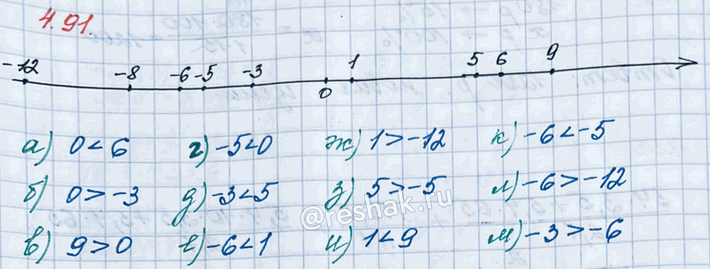 4.91.
-12 -8 -6 -5 -3 0 1 5 6 9
а) 0<6 г) -5<0 ж) 1>-12 к) -6<-5
б) 0>-3 д) -3<5 з) 5>-5 л) -6>-12
@reshak.ru
в) 9>0 е) -6<1 и) 1<9 м) -3>-6